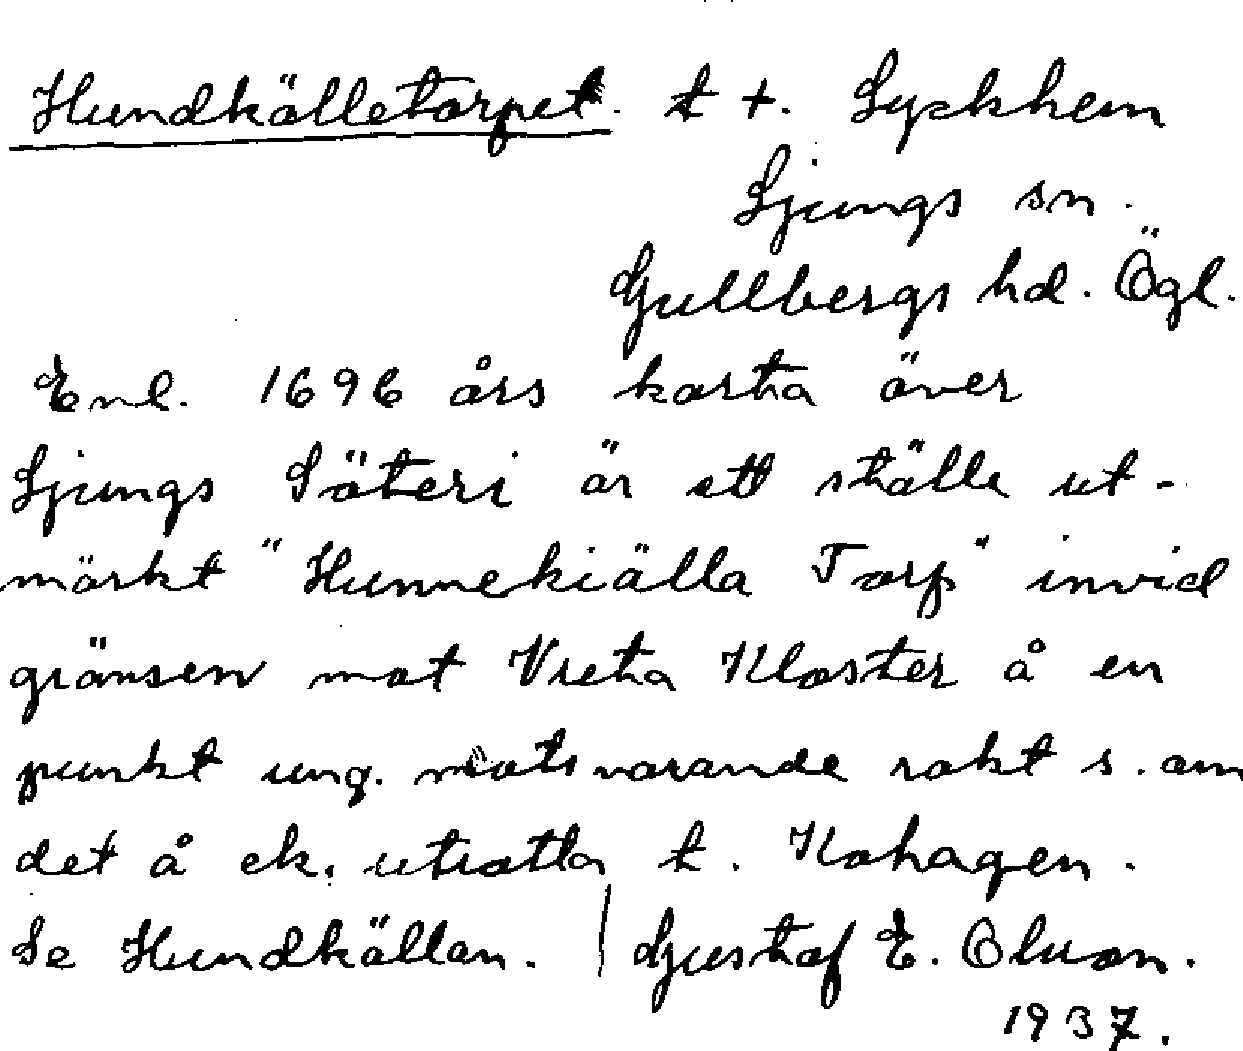 Hundkälletorpet. t +. Lyckhem
Ljungs sn.
Gullbergs hd. Ögl.
Enl. 1696 års karta över
Ljungs Säteri är ett ställe ut-
märkt "Hunnekiälla Torp" invid
gränsen mot Vreta Kloster å en
punkt ung. motsvarande rakt s. om
det å ek. utsatta t. Kohagen.
Se Hundkällan. | Gustaf E. Olsson.
1937.